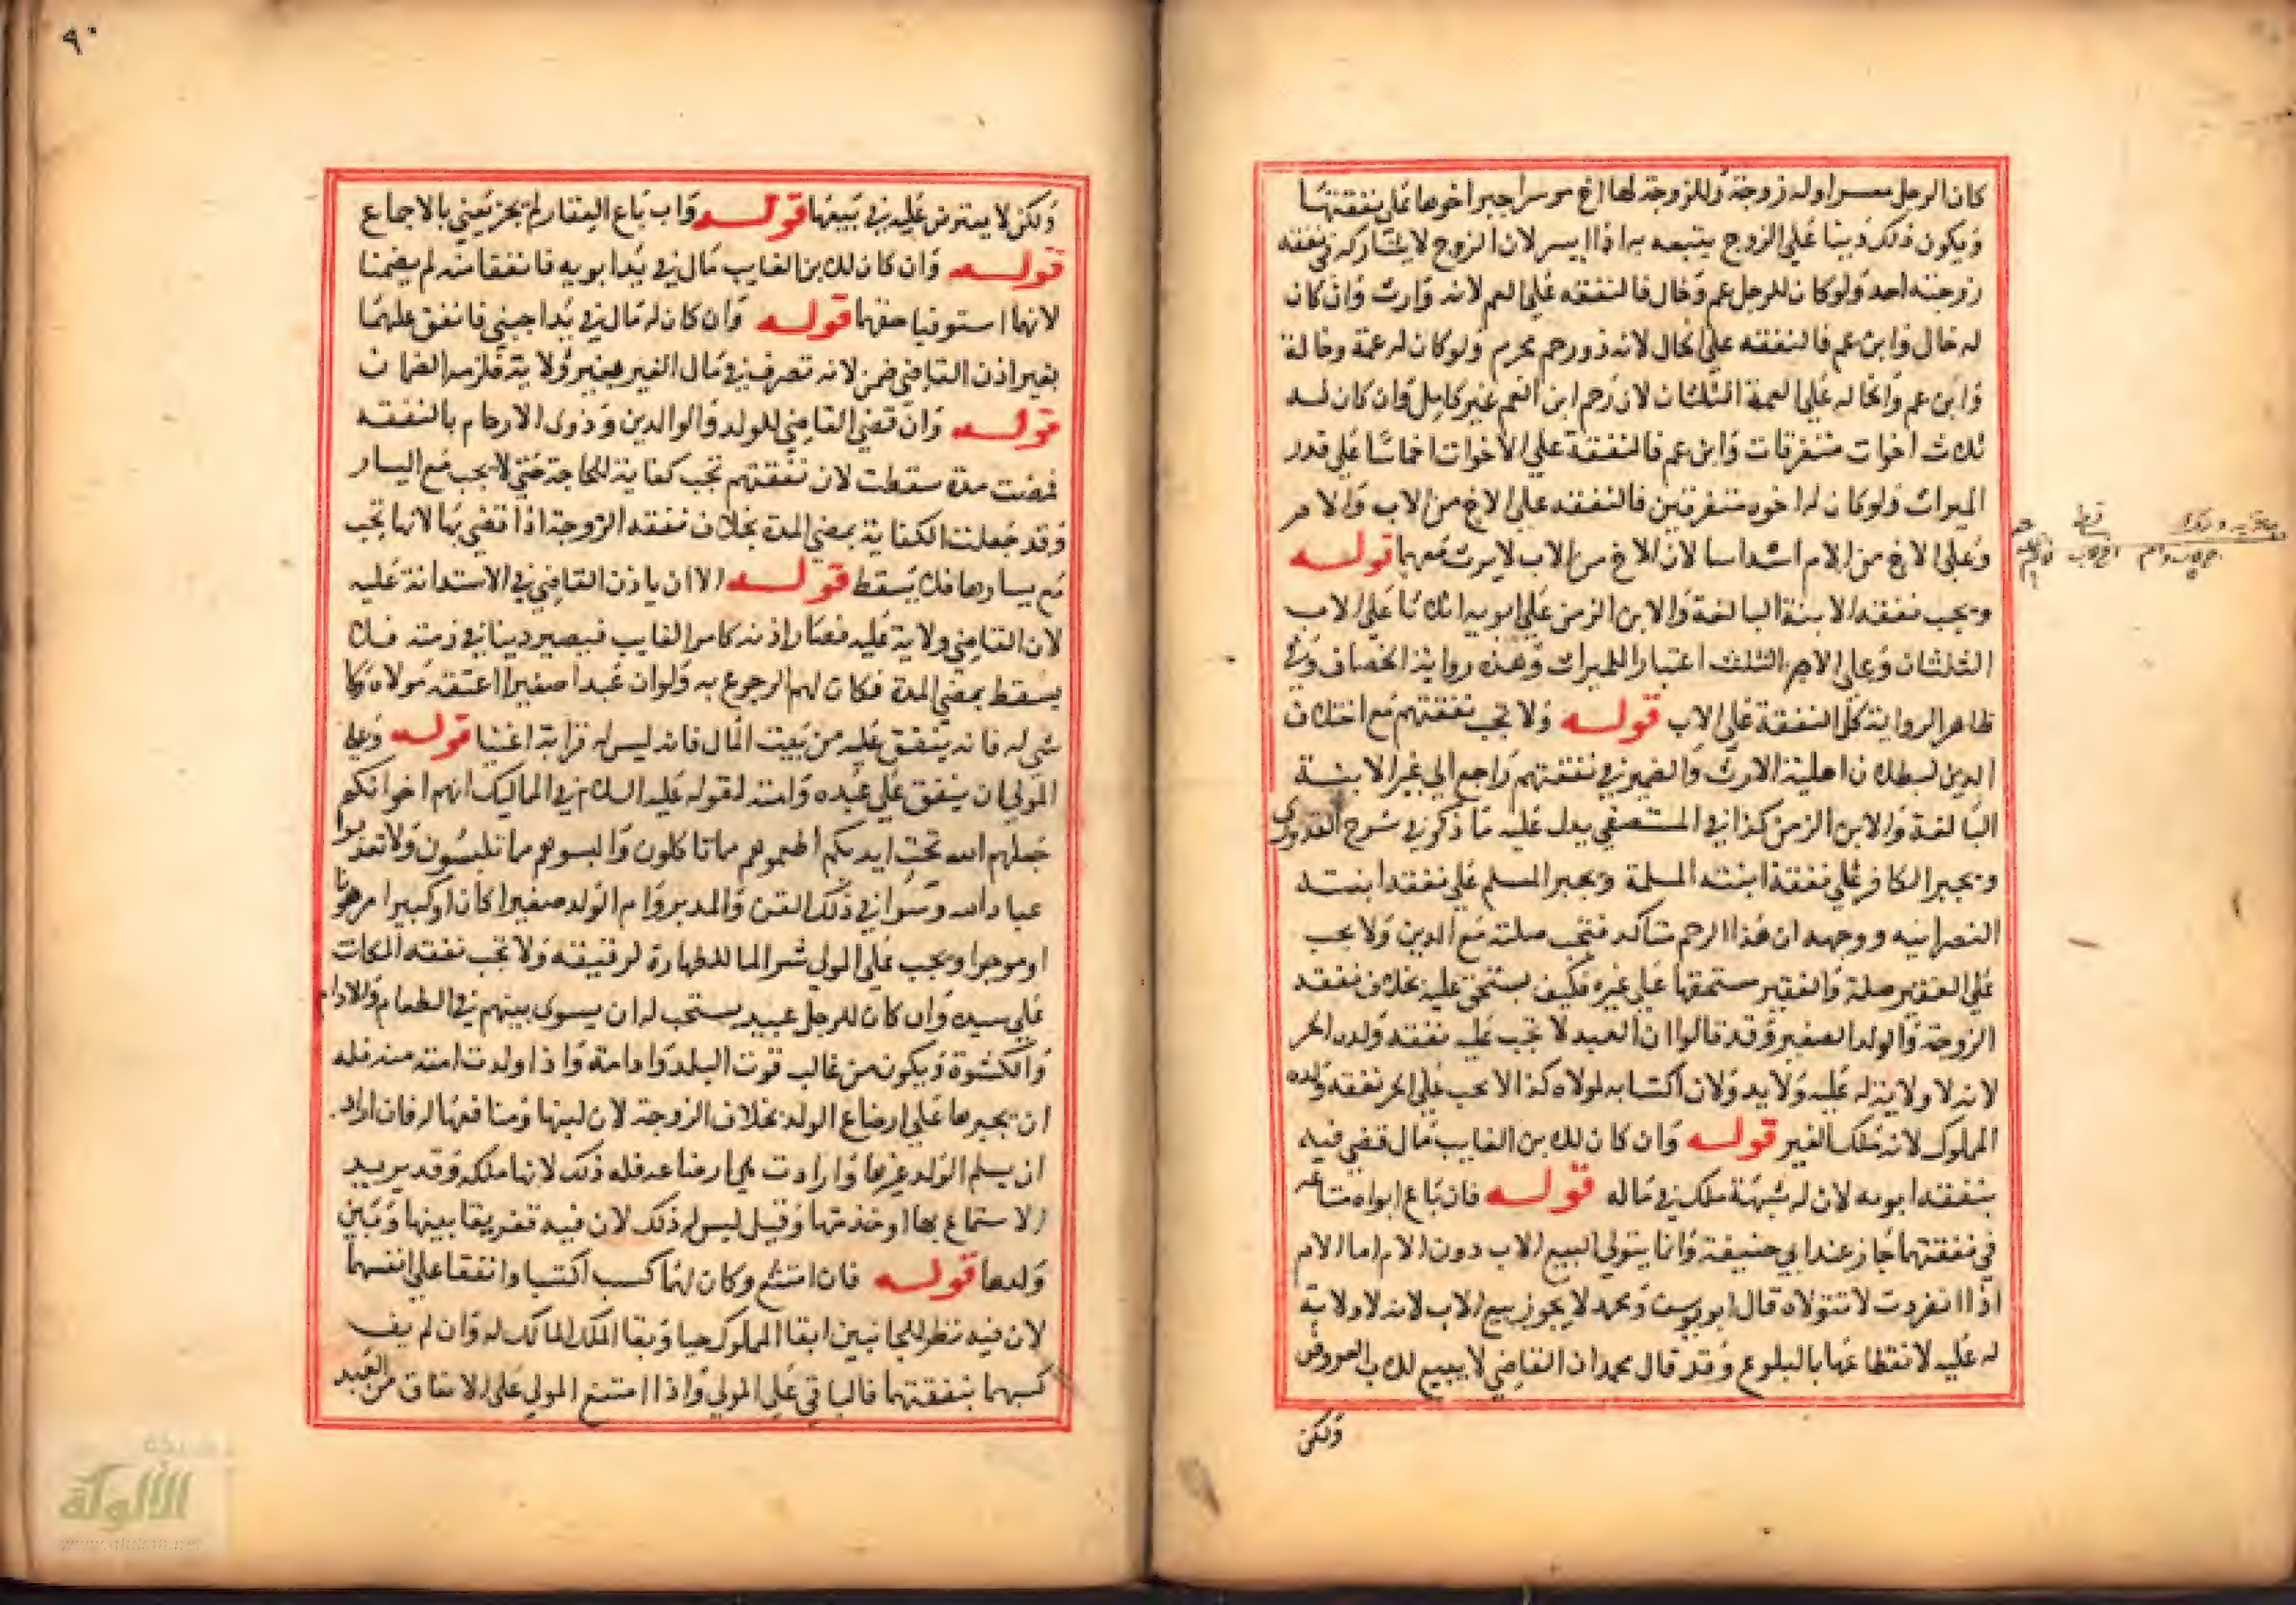 ٩٠
كان الرجل معسرا وله زوجة وللزوجة لها اخ موسر اجبر اخوها على نفقتها
ويكون ذلك دينا على الزوج يتبعه به اذا ايسر لان الزوج لا يشاركه في نفقة
زوجته احد ولو كان للرجل عم وخال فالنفقه على العم لانه وارث وان كان
له خال وابن عم فالنفقه على الخال لانه ذو رحم محرم ولو كان له عمة وخالة
وابن عم والخاله على العمة الثلثان لان رحم ابن العم غير كامل وان كان لـه
ثلاث اخوات متفرقات وابن عم فالنفقة على الاخوات اخماسا على قدر
الميراث ولو كان له اخوه متفرقين فالنفقه على الاخ من الاب والام
وعلى الاخ من الام اسداسا لان الاخ من الاب لا يرث معهما قولــه
ويجب نفقة الابنة البالغة والابن الزمن على ابويه اثلاثا على الاب
الثلثان وعلى الام الثلث اعتبارا للميراث وهذه رواية الخصاف وفي
ظاهر الرواية كل النفقة على الاب قولــه ولا تجب نفقتهم مع اختلاف
الدين لبطلان اهلية الارث والضمير في نفقتهم راجع الى غير الابنة
البالغة والابن الزمن كذا في المستصفى يدل عليه ما ذكر في شرح القدوري
ويجبر الكافر على نفقة ابنته المسلمة ويجبر المسلم على نفقة ابنته
النصرانيه ووجهه ان هذا الرحم متاكد فتجب صلته مع الدين ولا يجب
على الفقير صلة والفقير مستحقها على غيره فكيف يستحق عليه بخلاف نفقه
الزوجة والولد الصغير وقد قالوا ان العبد لا تجب عليه نفقه ولده الحر
لانه لا ولاية له عليه ولا يد ولان اكتسابه لمولاه كذا لا يجب على الحر نفقة ولده
المملوك لانه ملك الغير قولــه وان كان للابن الغايب مال قضي فيه
بنفقة ابويه لان له شبهة ملك في ماله قولــه فان باع ابواه متاعه
في نفقتهما جاز عند ابي حنيفة وانما يتولى البيع الاب دون الام اما الام
اذا انفردت لا تتولاه قال ابو يوسف ومحمد لا يجوز بيع الاب لانه لا ولاية
له عليه لانقطاعها بالبلوغ وقد قال محمد ان القاضي لا يبيع للاب العروض
ولكن
ولكن لا يعترض عليه في بيعها قولــه وان باع العقار لم يجز يعني بالاجماع
قولــه وان كان للابن الغايب مال في يد ابويه فانفقا منه لم يضمنا
لانهما استوفيا حقهما قولــه وان كان له مال في يد اجنبي فانفق عليهما
بغير اذن القاضي ضمن لانه تصرف في مال الغير بغير ولاية فلزمه الضمان
قولــه وان قضى القاضي للولد والوالدين وذوي الارحام بالنفقه
فمضت مدة سقطت لان نفقتهم تجب كفاية للحاجة حتى لا يجب مع اليسار
وقد جعلت الكفاية بمضي المدة بخلاف نفقه الزوجة اذا قضي بها لانها تجب
مع يسارها فلا يسقط قولــه الا ان ياذن القاضي في الاستدانة عليه
لان القاضي ولاية عليه فصار اذنه كامر الغايب فيصير دينا في ذمته فلا
يسقط بمضي المدة فكان لهم الرجوع به ولو ان عبدا صغيرا اعتقه مولاه ولا
شي له فانه ينفق عليه من بيت المال فانه ليس له قرابة اغنيا قولــه وعلى
المولى ان ينفق على عبده وامته لقوله عليه السلام في المماليك انهم اخوانكم
جعلهم الله تحت ايديكم اطعموهم مما تاكلون والبسوهم مما تلبسون ولا تعذبوا
عباد الله وسوا في ذلك القن والمدبر وام الولد صغيرا كان او كبيرا مرهونا
او موجرا ويجب على المولى شرا الما للطهارة لرقيقه ولا تجب نفقه المكاتب
على سيده وان كان للرجل عبيد يستحب له ان يسوى بينهم في الطعام والادام
والكسوة ويكون من غالب قوت البلد وادامه واذا ولدت امته منه فله
ان يجبرها على ارضاع الولد بخلاف الزوجة لان لبنها ومنافعها له فان اراد
ان يسلم الولد غيرها وارادت هي ارضاعه فله ذلك لانها ملكه وقد يريد
الاستمتاع بها او خدمتها وقيل ليس له ذلك لان فيه تفريقا بينها وبين
ولدها قولــه فان امتنع وكان لهما كسب اكتسبا وانفقا على انفسهما
لان فيه نظر للجانبين ابقا المملوك حيا وبقا الملك للمالك له وان لم يف
كسبهما بنفقتهما فالباقي على المولى واذا امتنع المولى على الانفاق من العبد
الألوكة
www.alukah.net